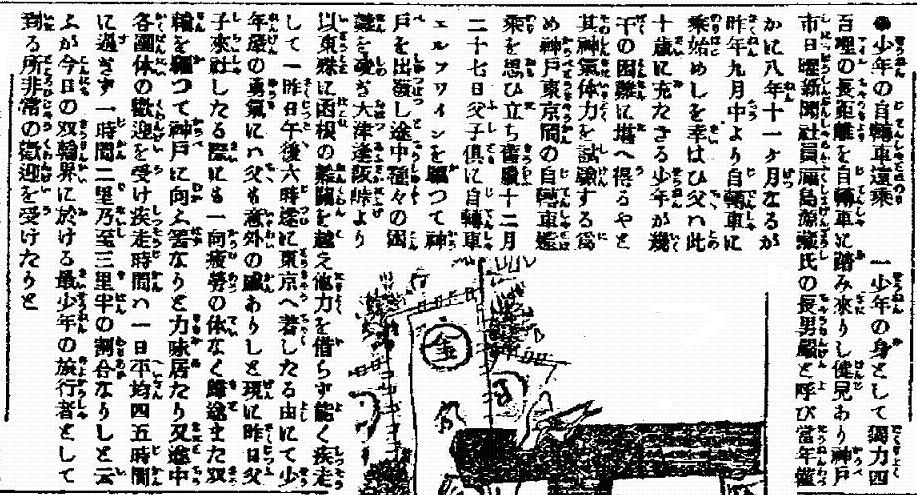 ●少年の自轉車遠乗　一少年の身として獨力四
百哩の長距離を自轉車に踏み來りし健兒あり神戸
市日曜新聞社員福島漁藏氏の長男嚴と呼び當年僅
かに八年十一ヶ月なるが
昨年九月中より自轉車に
乗始めしを幸はひ父ハ此
十歳に充たざる少年が幾
干の困難に堪へ得るやと
其神氣体力を試驗する爲
め神戸東京間の自轉車遠
乗を思ひ立ち舊臘十二月
二十七日父子倶に自轉車
エルヅワインを驅つて神
戸を出發し途中種々の困
難を凌ぎ大津逢阪峠より
以東殊に函根の難關を越え他力を借らず能く疾走
して一昨日午後六時遂に東京へ着したる由にて少
年嚴の勇氣にハ父も意外の感ありしと現に昨日父
子來社したる際にも一向疲勞の体なく歸途また双
輪を驅つて神戸に向ふ筈なりと力味居たり又途中
各團体の歡迎を受け疾走時間ハ一日平均四五時間
に過ぎず一時間二里乃至三里半の割合なりしと云
ふが今日の双輪界に於ける最少年の旅行者として
到る所非常の歡迎を受けたりと
金